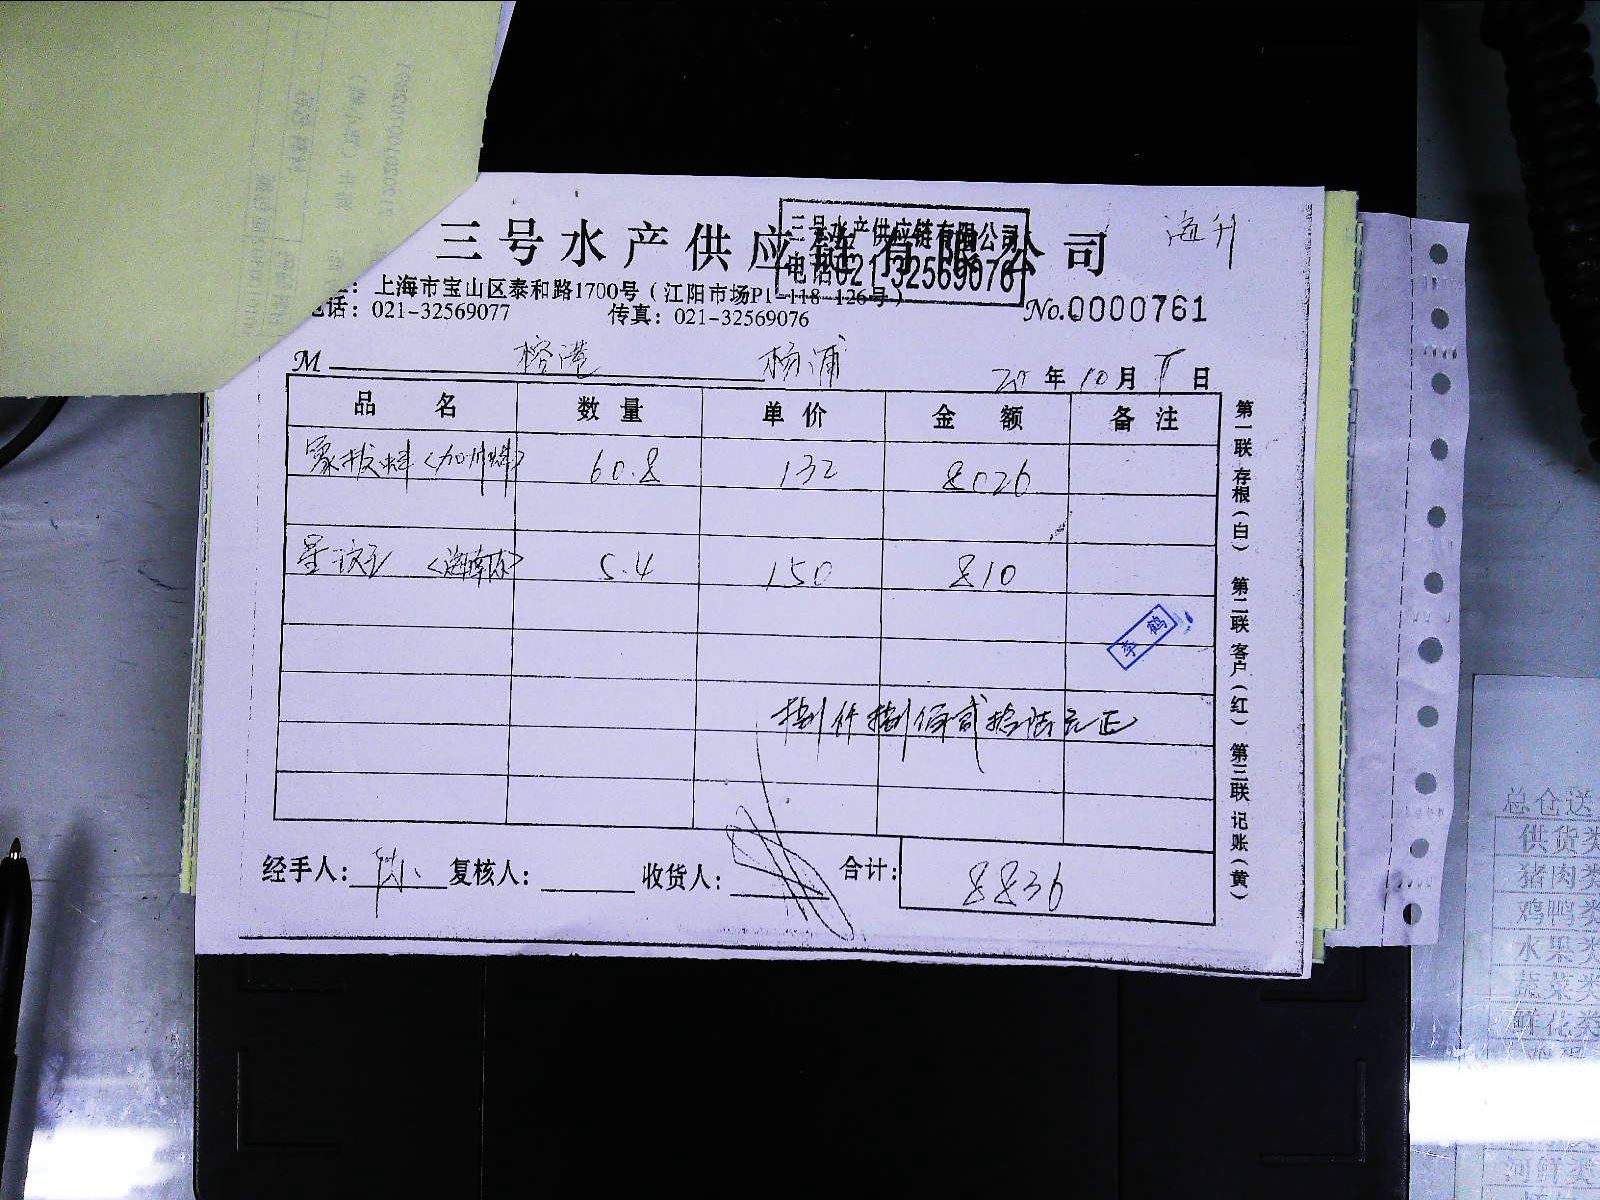 三号水产供应链有限公司
三号水产供应链有限公司
电话021-32569076
海升
上海市宝山区泰和路1700号（江阳市场P1-118-126号）
电话：021-32569077 传真：021-32569076
No.0000761
M 榕港 杨浦
年 10 月 日
品 名 数 量 单 价 金 额 备 注
象拔蚌 60.8 132 8026
星斑 5.4 150 810
李鹤
捌仟捌佰 拾陆元正
经手人： 复核人： 收货人： 合计： 8836
第一联 存根（白） 第二联 客户（红） 第三联 记账（黄）
总仓送
供货类
猪肉类
鸡鸭类
水果类
蔬菜类
鲜花类
河鲜类